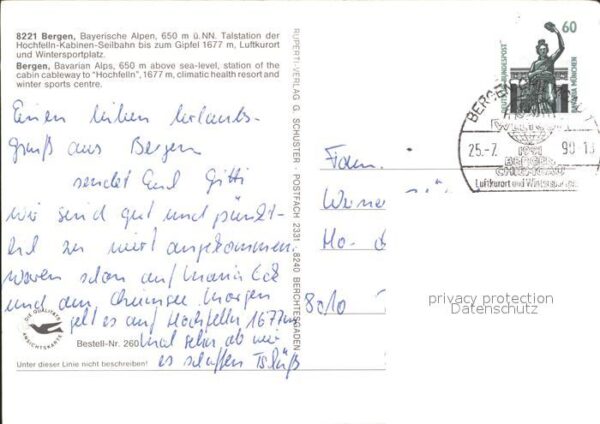 8221 Bergen, Bayerische Alpen, 650 m ü.NN. Talstation der
Hochfelln-Kabinen-Seilbahn bis zum Gipfel 1677 m, Luftkurort
und Wintersportplatz.
Bergen, Bavarian Alps, 650 m above sea-level, station of the
cabin cableway to "Hochfelln", 1677 m, climatic health resort and
winter sports centre.
Einen lieben Urlaubs-
gruß aus Bergen
sendet Euch Gitti
wir sind gut und pünkt-
lich angekommen.
waren schon auf Maria Eck
und am Chiemsee. Morgen
geht es auf Hochfelln 1677m
mal sehn, ob wir
es schaffen Tschüß
DIE QUALITÄTS
ANSICHTSKARTE
Bestell-Nr. 260
Unter dieser Linie nicht beschreiben!
RUPERTI-VERLAG G. SCHUSTER · POSTFACH 2331 · 8240 BERCHTESGADEN
Fam.
Werne
Ho-
8010
60
DEUTSCHE BUNDESPOST
BAVARIA MÜNCHEN
BERGEN
25.-7. 90-18
BERGEN
CHIEMGAU
Luftkurort und Wintersport
privacy protection
Datenschutz